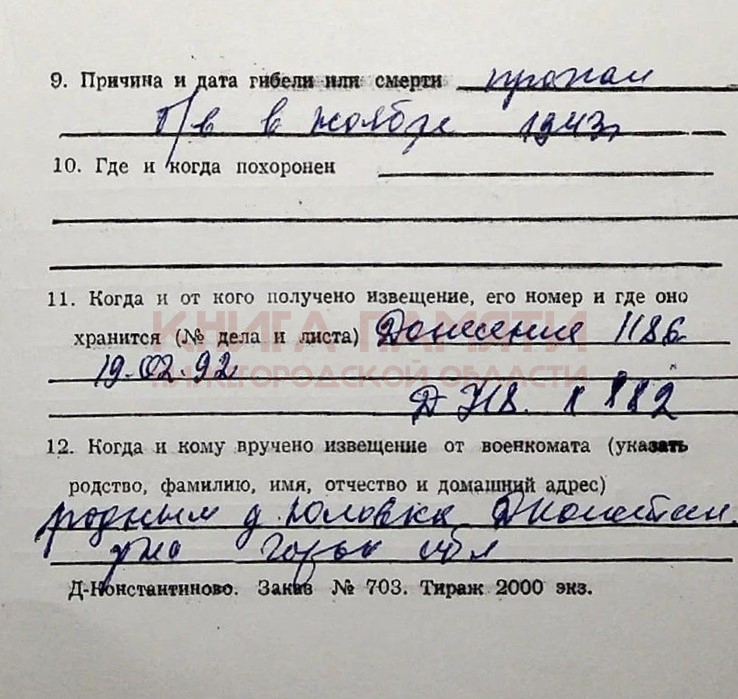 9. Причина и дата гибели или смерти пропал
б/в в ноябре 1943г
10. Где и когда похоронен
11. Когда и от кого получено извещение, его номер и где оно
хранится (№ дела и листа) Донесение 1186
19.02.92
КНИГА ПАМЯТИ
НИЖЕГОРОДСКОЙ ОБЛАСТИ
12. Когда и кому вручено извещение от военкомата (указать
родство, фамилию, имя, отчество и домашний адрес)
родным д. Юловка
обл
Д-Константиново. Заказ № 703. Тираж 2000 экз.